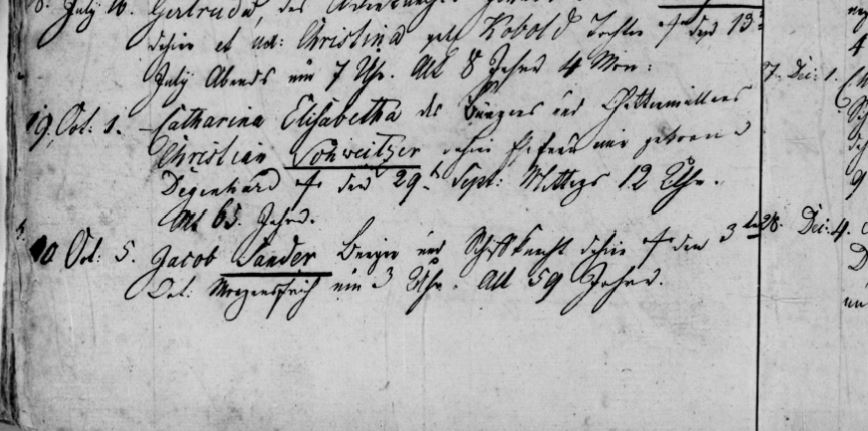 8. July 16. Gertruda, des
dahier et ux: Christina geb Kobold Tochter † den 13t
July Abends um 7 Uhr. Alt 8 Jahr 4 Mon:
19. Oct: 1. Catharina Elisabetha des Bürgers und
Christian Schweitzer dahier Ehefrau eine geborene
Degenhard † den 29t Sept: Mittags 12 Uhr.
Alt 65. Jahre.
20 Oct: 5. Jacob Sander Bürger und Schiffknecht dahier † den 3ten
Oct: Morgensfrüh um 3 Uhr. Alt 59 Jahre.
7. Dec: 1.
28. Dec: 4.